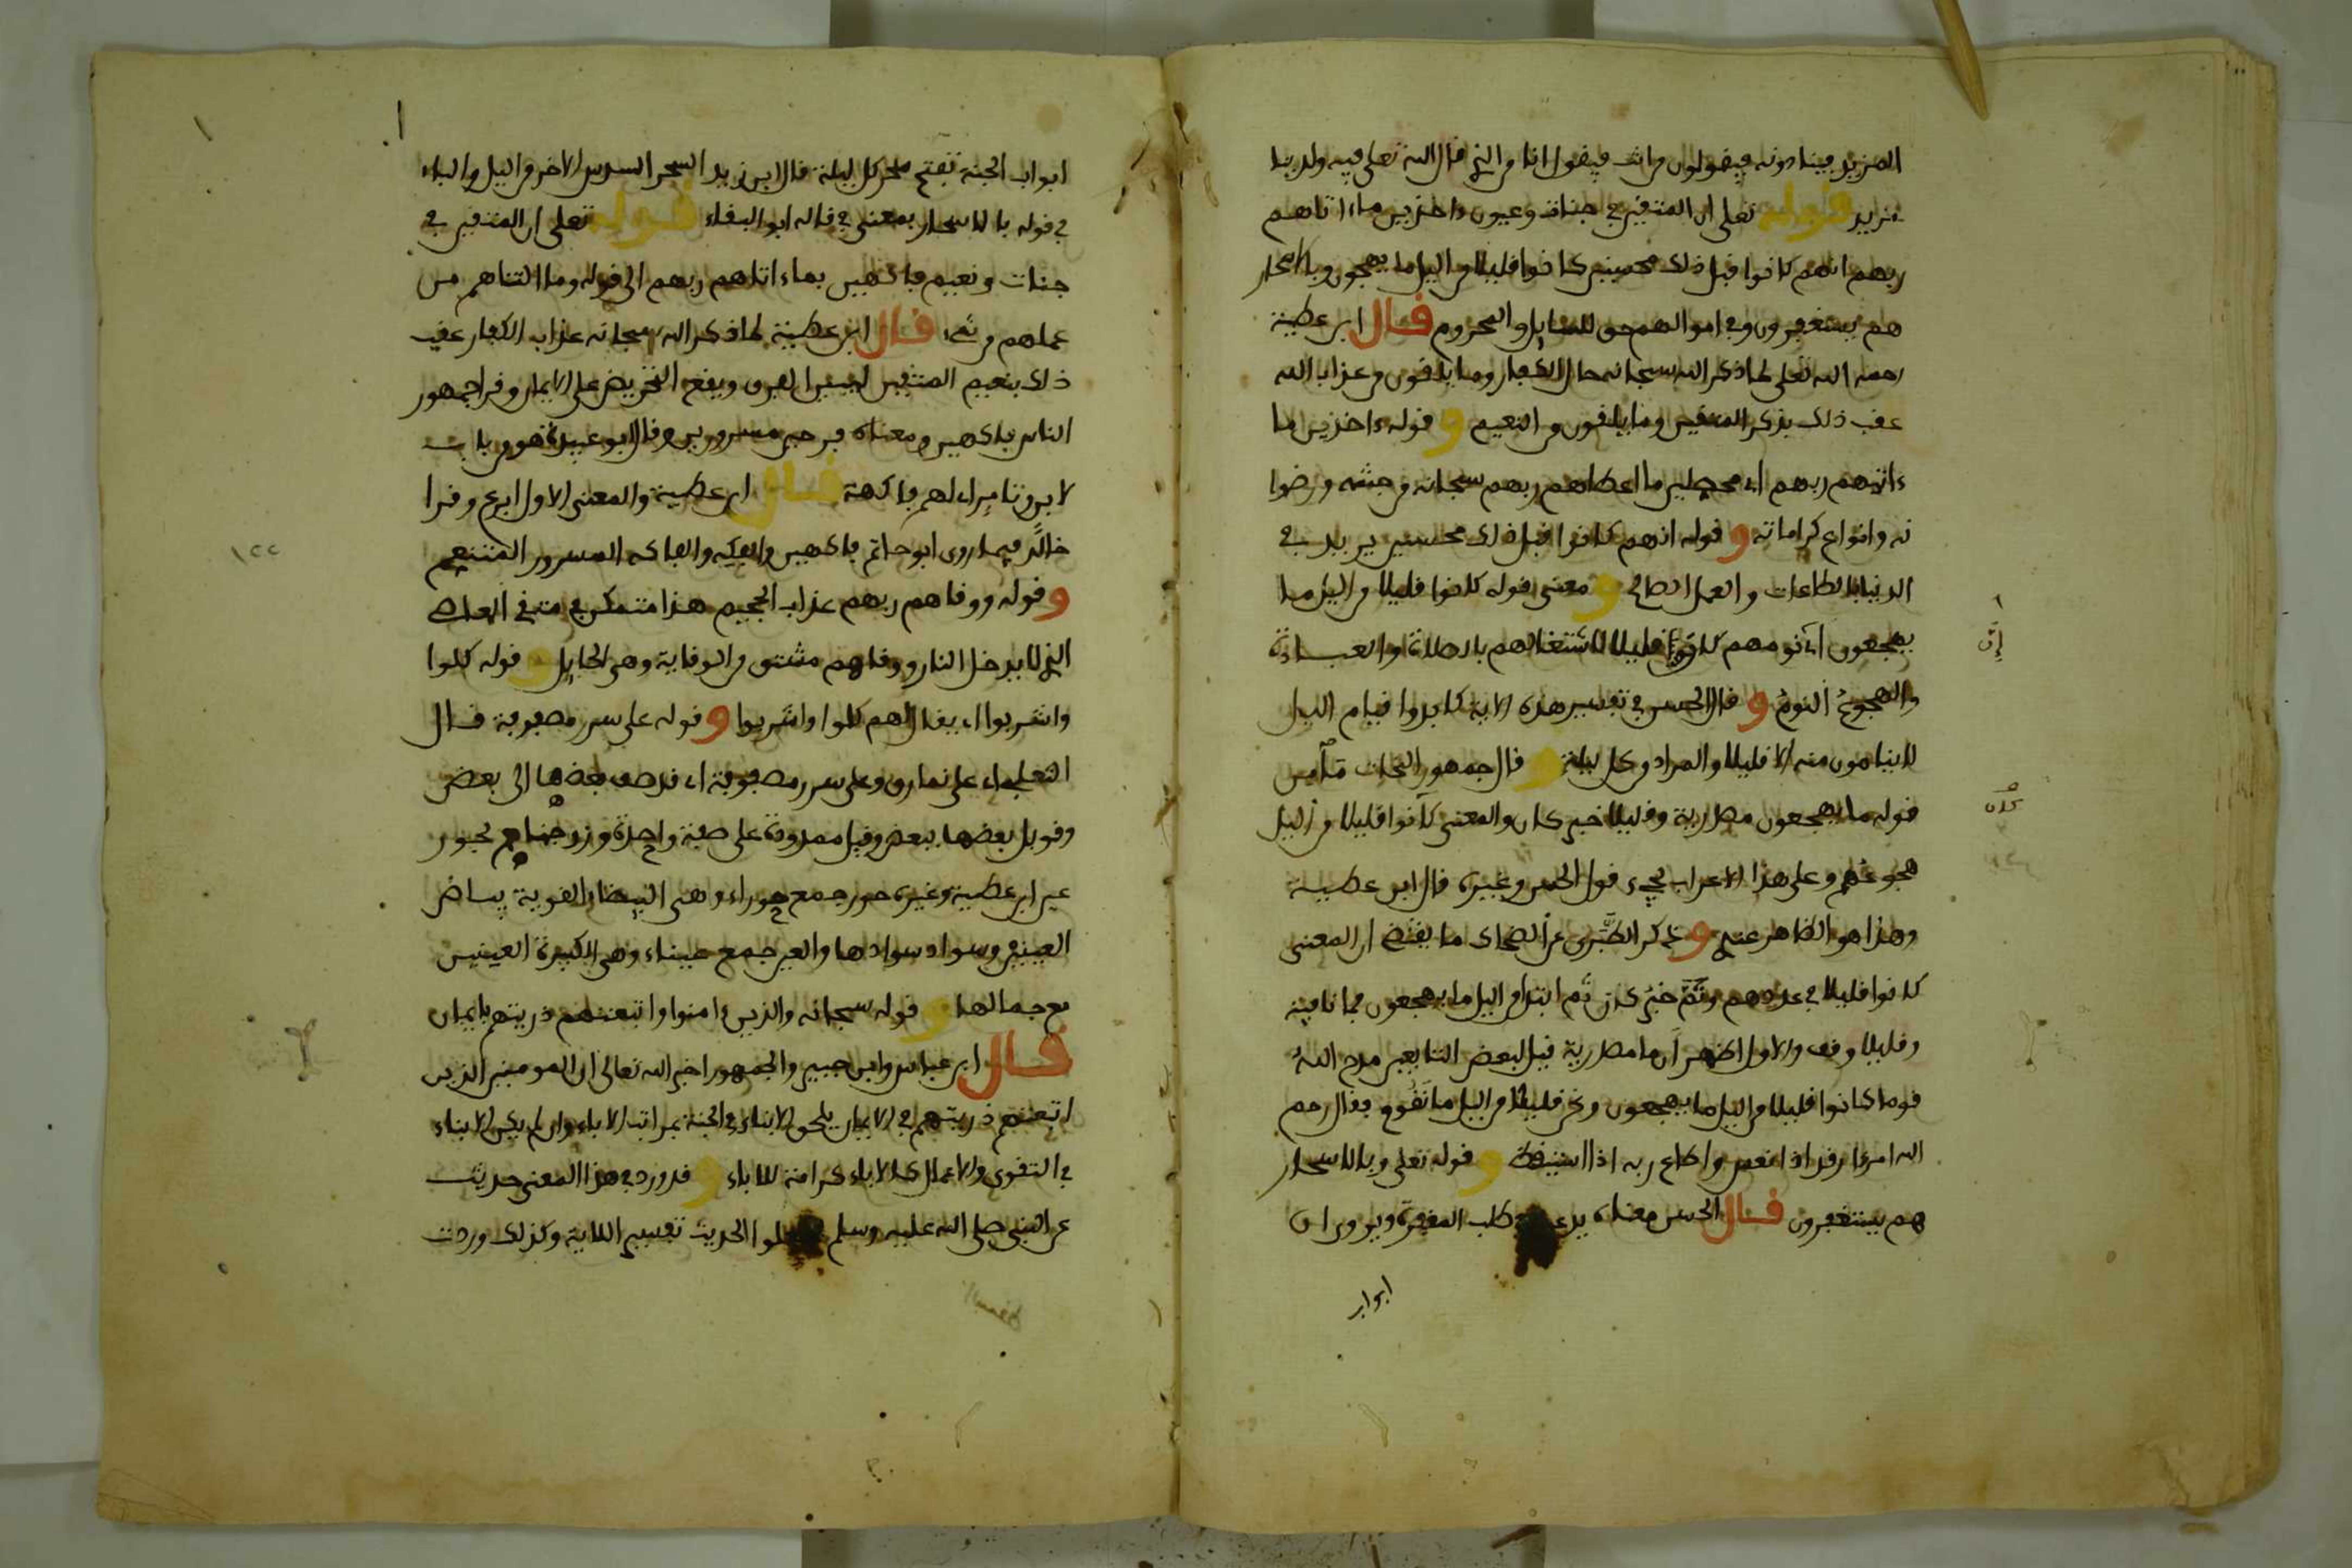 المزيد فينادونه فيقولون من انت فيقول انا من الذي قال الله تعلى فيه ولدينا
مزيد قوله تعلى ان المتقين في جنات وعيون ءاخذين ما ءاتاهم
ربهم انهم كانوا قبل ذلك محسنين كانوا قليلا من اليل ما يهجعون وبالاسحار
هم يستغفرون وفي اموالهم حق للسايل والمحروم قال ابن عطية
رحمه الله تعلى لما ذكر الله سبحانه حال الكفار وما يلقون من عذاب الله
عقب ذلك بذكر المتقين وما يلقون من النعيم و قوله ءاخذين ما
ءاتيهم ربهم اي محصلين ما اعطاهم ربهم سبحانه من جنته ورضوا
نه وانواع كراماته و قوله انهم كانوا قبل ذلك محسنين يريد في
الدنيا بالطاعات والعمل الصالح و معنى قوله كانوا قليلا من اليل ما
يهجعون اي نومهم كان قليلا لاشتغالهم بالصلاة والعبادة
والهجوع النوم و قال الحسن في تفسير هذه الاية كابدوا قيام اليل
لاينامون منه الا قليلا والمراد من كل ليلة و قال جمهور النحات
قوله ما يهجعون مصدرية وقليلا خبر كان والمعنى كانوا قليلا من اليل
هجوعهم وعلى هذا الاعراب يجيء قول الحسن وغيره قال ابن عطية
وهذا هو الظاهر عندي و ذكر الطبري عن الضحاك ما يقتضي ان المعنى
كانوا قليلا في عددهم وتم خبر كان ثم ابتدا من اليل ما يهجعون فما نافية
وقليلا وقف والاول اظهر ان ما مصدرية قيل لبعض التابعين مدح الله
قوما كانوا قليلا من اليل ما يهجعون ونحن قليلا من اليل ما نقوم فقال رحم
الله امرءا رقد اذا نعس واطاع ربه اذا استيقظ و قوله تعلى وبالاسحار
هم يستغفرون قال الحسن معناه يدعون في طلب المغفرة ويروى ان
ابواب
ابواب الجنة تفتح سحر كل ليلة قال ابن زيد السحر السدس الاخر من اليل والباء
في قوله بالاسحار بمعنى في قاله ابو البقاء قوله تعلى ان المتقين في
جنات ونعيم فاكهين بما ءاتاهم ربهم الى قوله وما التناهم من
عملهم من شيء قال ابن عطية لما ذكر الله سبحانه عذاب الكفار عقب
ذلك بنعيم المتقين ليبين الفرق ويقع التحريض على الايمان وقرا جمهور
الناس فاكهين ومعناه فرحين مسرورين وقال ابو عبيدة هو من باب
لابن وتامر اي لهم فاكهة قال ابن عطية والمعنى الاول ابرع وقرا
خالد فيما روى ابو حاتم فاكهين والفكه والفاكه المسرور المتنعم
و قوله ووقاهم ربهم عذاب الجحيم هذا متمكن في متقي المعاصي
الذي لا يدخل النار ووقاهم مشتق من الوقاية وهي الحايل و قوله كلوا
واشربوا اي يقال لهم كلوا واشربوا و قوله على سرر مصفوفة قال
الثعلبي اي على نمارق وعلى سرر مصفوفة اي قد صف بعضها الى بعض
وقوبل بعضها ببعض وقيل ممدودة على صفة واحدة وزوجناهم بحور
عين ابن عطية وغيره حور جمع حوراء وهي البيضاء القوية بياض
العينين وسواد سوادها والعين جمع عيناء وهي الكبيرة العينين
مع جمالها و قوله سبحانه والذين ءامنوا واتبعتهم ذريتهم بايمان
قال ابن عباس وابن جبير والجمهور اخبر الله تعالى ان المومنين الذين
اتبعتهم ذريتهم في الايمان يلحق الابناء في الجنة بمراتب الاباء وان لم يكن الابناء
في التقوى والاعمال كالاباء كرامة للاباء و قد ورد في هذا المعنى حديث
عن النبي صلى الله عليه وسلم الحديث تفسير اللاية وكذلك وردت
١٢٢